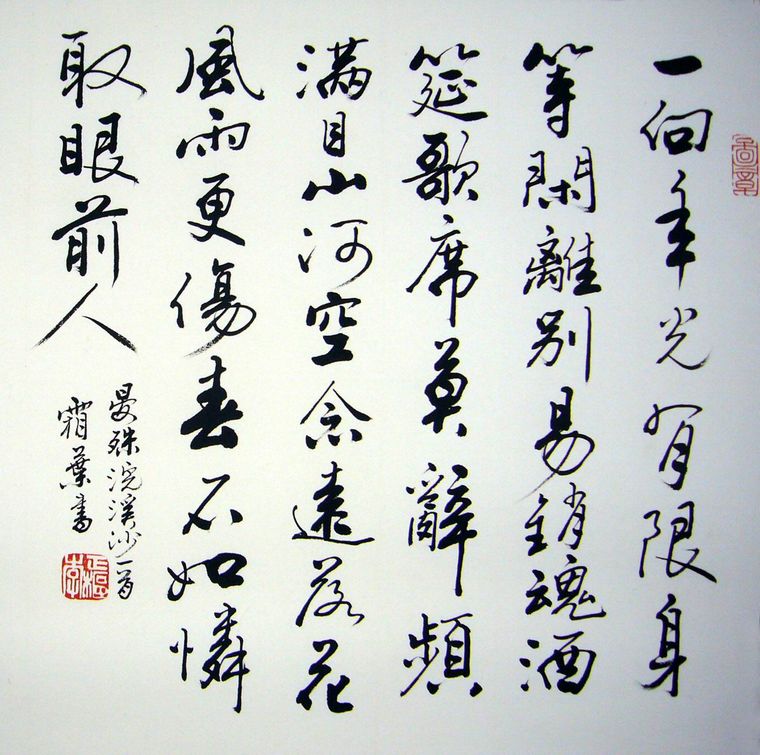 一向年光有限身
等閑離別易銷魂酒
筵歌席莫辭頻
滿目山河空念遠落花
風雨更傷春不如憐
取眼前人
晏殊浣溪沙一首
霜葉書